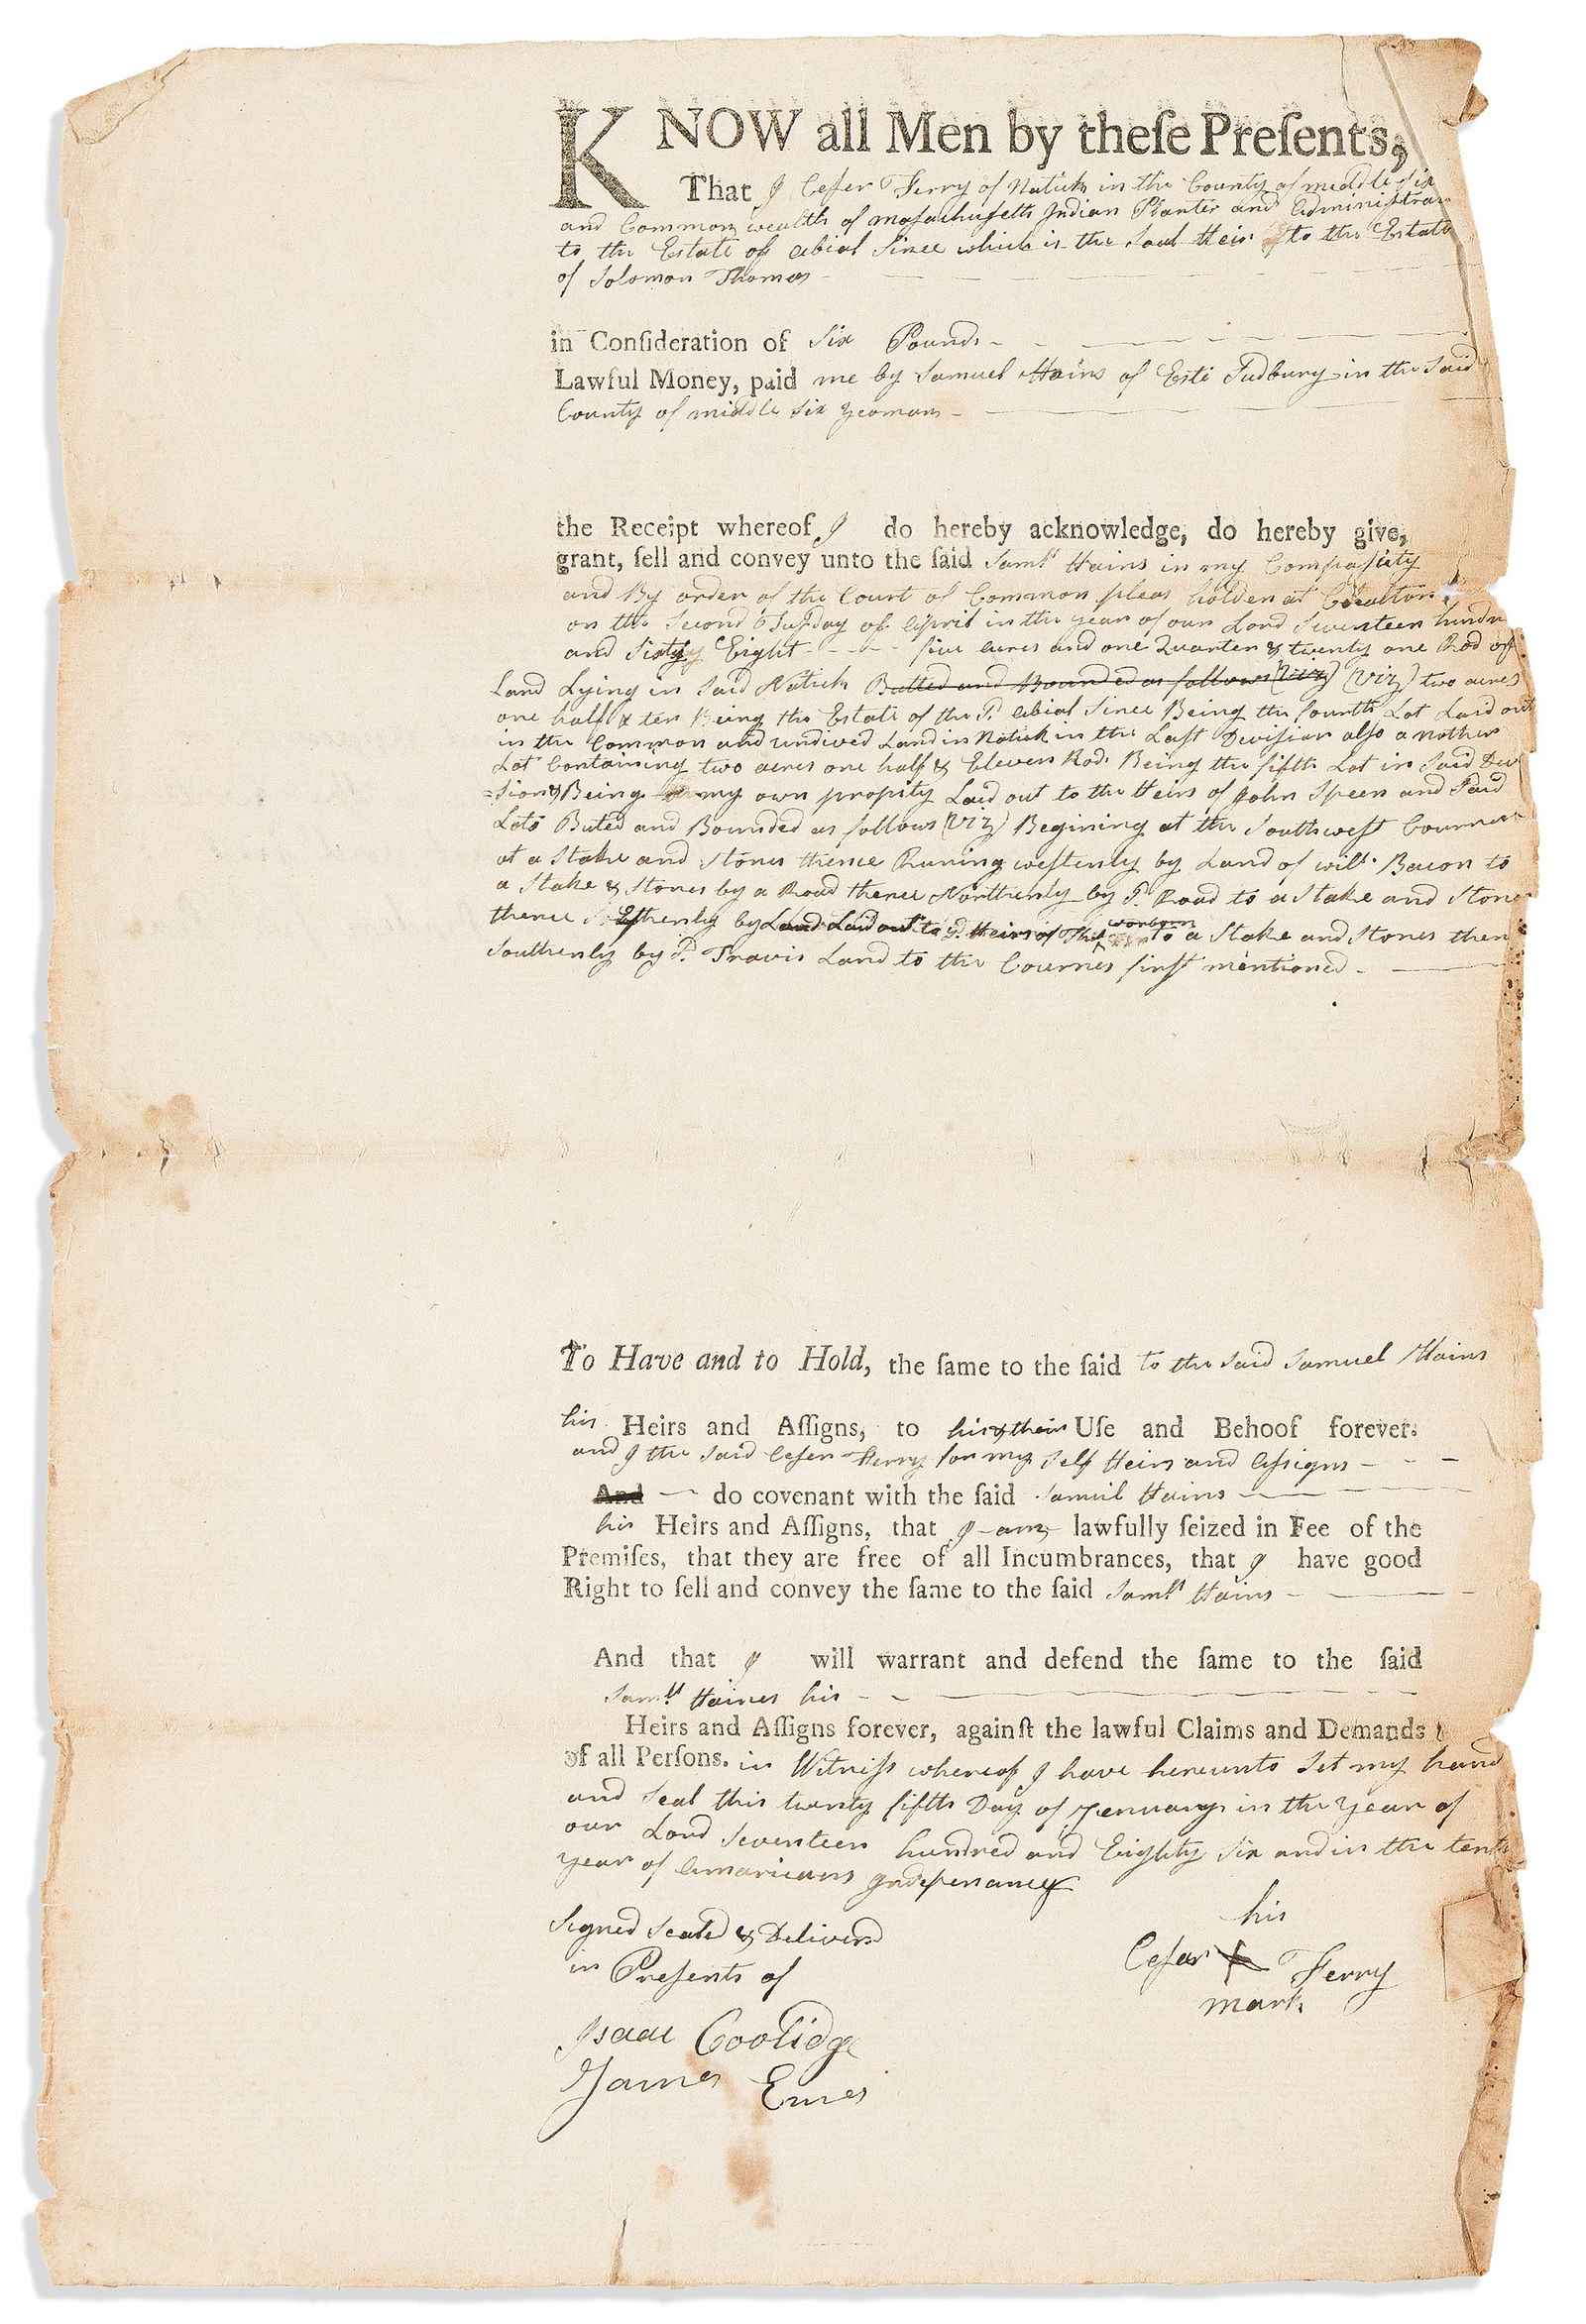 KNOW all Men by theſe Preſents,
That I Ceſer Ferry of Natick in the County of middle ſix
and Common wealth of maſachuſetts Indian Planter and Adminiſtra
to the Estate of Abial Sinee which is the Soal Heir to the Estate
of Solomon Thomas
in Conſideration of Six Pounds
Lawful Money, paid me by Samuel Hains of Este Sudbury in the Said
County of middle Six yeoman
the Receipt whereof I do hereby acknowledge, do hereby give,
grant, ſell and convey unto the ſaid Samll Hains in my Compaſity
and By order of the Court of Common pleas holden at
on the Second Tuſday of April in the year of our Lord Seventeen hundr
and Sixty Eight five acres and one Quarter & twenty one Rod of
Land Lying in Said Natick Butted and Bounded as follows (viz) (viz) two acres
one half & ten Being the Estate of the Sd. Abial Sinee Being the fourth Lot Laid out
in the Common and undived Land in Natick in the Laſt Deviſion alſo a nother
Lot Containing two acres one half & Eleven Rods Being the fifth Lot in Said Dev
=sion & Being my own propity Laid out to the Heirs of John Speen and Said
Lots Buted and Bounded as follows (viz) Begining at the Southweſt Courner
at a Stake and Stones thence Runing weſtenly by Land of will. Bacon to
a Stake & Stones by a Road thence Northenly by Sd. Road to a Stake and Stone
thence by Land Laid out to Sd. heirs of to a Stake and Stones then
Southenly by Sd. Travis Land to the Courner firſt mentioned
To Have and to Hold, the ſame to the ſaid to the Said Samuel Hains
his Heirs and Aſſigns, to his & their Uſe and Behoof forever.
and I the Said Ceſer Ferry for my Self Heirs and Aſsigns
And do covenant with the ſaid Samuil Hains
his Heirs and Aſſigns, that I am lawfully ſeized in Fee of the
Premiſes, that they are free of all Incumbrances, that I have good
Right to ſell and convey the ſame to the ſaid Samll Hains
And that I will warrant and defend the ſame to the ſaid
Samll Haines his
Heirs and Aſſigns forever, againſt the lawful Claims and Demands
of all Perſons. in Witneſs whereof I have hereunto Set my hand
and Seal this twenty fifth Day of Jenuary in the Year of
our Lord Seventeen hundred and Eighty Six and in the tenth
year of Amaricans Indepenancy
Signed Sealed & Deliverd
in Preſents of
his
Ceſar X Ferry
mark
Isaac Coolidge
James Emes